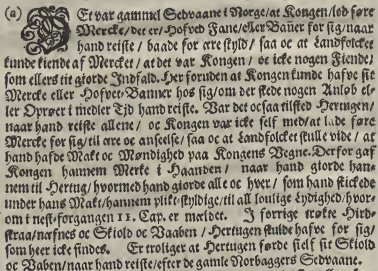 (a) DEt var gammel Sedvaane i Norge/at Kongen/lod føre
Mercke/det er/Hofved Fane/eller Baner for sig/naar
hand reiste / baade for ære skyld/ saa oc at Landfolcket
kunde kiende af Mercket / at det var Kongen / oc icke nogen Fiende/
som ellers tit giorde Indfald. Her foruden at Kongen kunde hafve sit
Mercke eller Hofvet-Banner hos sig/om der skede nogen Anløb el-
ler Oprøer i medler Tjd hand reiste. Var det oc saa tilsted Hertugen/
naar hand reiste allene / oc Kongen var icke self med/at lade føre
Mercke for sig/til ære oc anseelse/ saa oc at Landfolcket skulle vide / at
hand hafde Mact oc Møndighed paa Kongens Vegne. Derfor gaf
Kongen hannem Merke i Haanden / naar hand giorde han-
nem til Hertug/hvormed hand giorde alle oc hver / som hand skickede
under hans Mact/hannem plikt-skyldige/til all loulige Lydighed/hvor-
om i nest-forgangen 11. Cap. er mældet. I forrige trøkte Hird-
straa/næfnes oc Skiold oc Vaaben / Hertugen skulde hafve for sig/
som heer icke findes. Er troliger at Hertugen førde sielf sit Skiold
oc Vaben/naar hand reiste/efter de gamle Norbaggers Sedvaane.